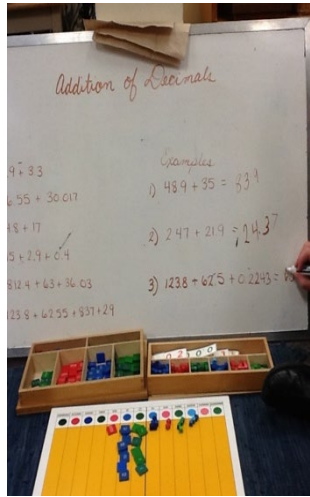 Addition of Decimals
.9 + 3.3
.55 + 30.017
.8 + 17
5 + 2.9 + 0.4
812.4 + 63 + 36.03
123.8 + 62.55 + 837 + 2.9
Examples
1) 48.9 + 35 = 839
2) 2.47 + 21.9 = 24.37
3) 123.8 + 62.5 + 0.2243 =